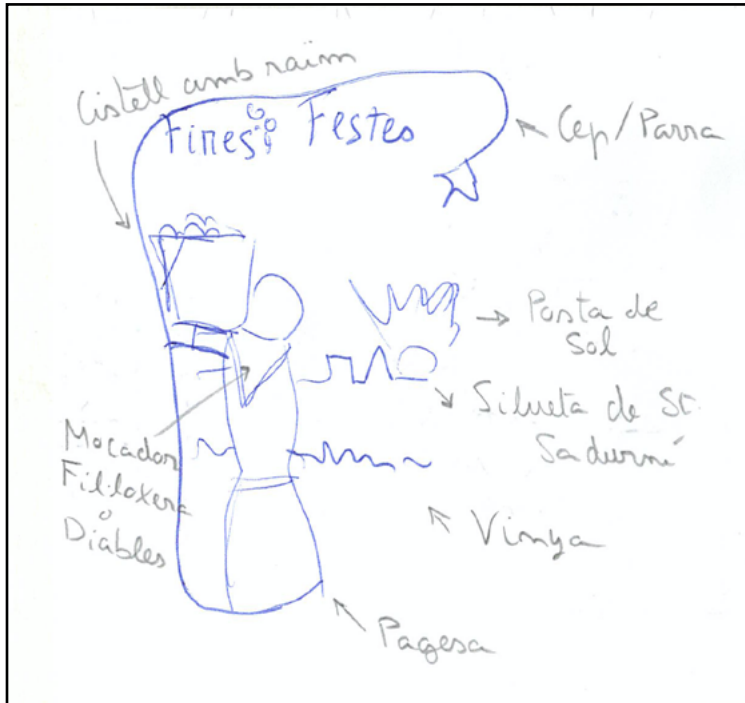 Cistell amb raïm
Fires i Festes
Cep/Parra
Posta de
Sol
Silueta de St.
Sadurní
Mocador
Fil·loxera
o
Diables
Vinya
Pagesa